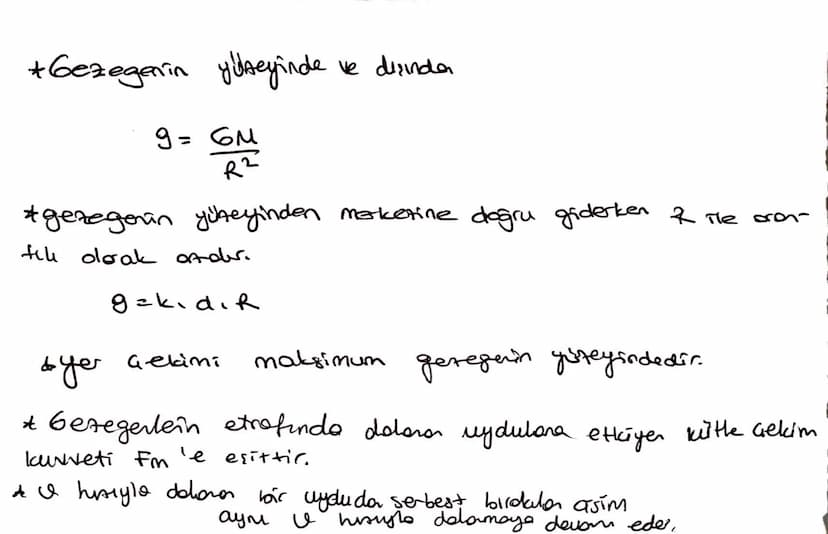 * Gezegenin yüzeyinde ve dışında
g = GM / R²
* gezegenin yüzeyinden merkezine doğru giderken R ile oran-
tılı olarak azalır.
g = k . d . R
* Yer çekimi maksimum gezegenin yüzeyindedir.
* Gezegenlein etrafında dolanan uydulara etkiyen kütle çekim
kuvveti Fm 'e eşittir.
* v hızıyla dolanan bir uyduda serbest bırakılan cisim
aynı v hızıyla dolanmaya devam eder.